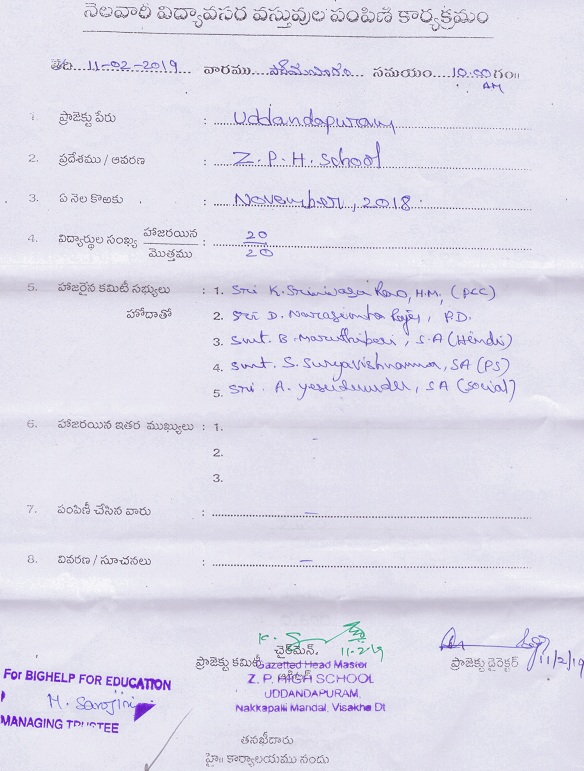 నెలవారీ విద్యావసర వస్తువుల పంపిణీ కార్యక్రమం
తేది 11-02-2019 వారము సోమవారం సమయం 10.00 గం॥ AM
1. ప్రాజెక్టు పేరు : Uddandapuram
2. ప్రదేశము / ఆవరణ : Z. P. H. School
3. ఏ నెల కొఱకు : November, 2018.
4. విద్యార్థుల సంఖ్య హాజరయిన / మొత్తము : 20 / 20
5. హాజరైన కమిటీ సభ్యులు : 1. Sri K. Srinivasa Rao, H.M, (PCC)
హోదాతో 2. Sri D. Narasimha Raju, P.D.
3. Smt. B. , S.A (Hindi)
4. Smt. S. , SA (PS)
5. Sri. A. , SA (Social)
6. హాజరయిన ఇతర ముఖ్యులు : 1.
2.
3.
7. పంపిణీ చేసిన వారు : —
8. వివరణ / సూచనలు : —
11-2-19
ప్రాజెక్టు కమిటీ ఛైర్‌మేన్.
11/2/19
ప్రాజెక్టు డైరెక్టర్
Gazetted Head Master
Z. P. HIGH SCHOOL
UDDANDAPURAM,
Nakkapalli Mandal, Visakha Dt
For BIGHELP FOR EDUCATION
M. Sarojini
MANAGING TRUSTEE
తనఖీదారు
హై॥ కార్యాలయము నందు